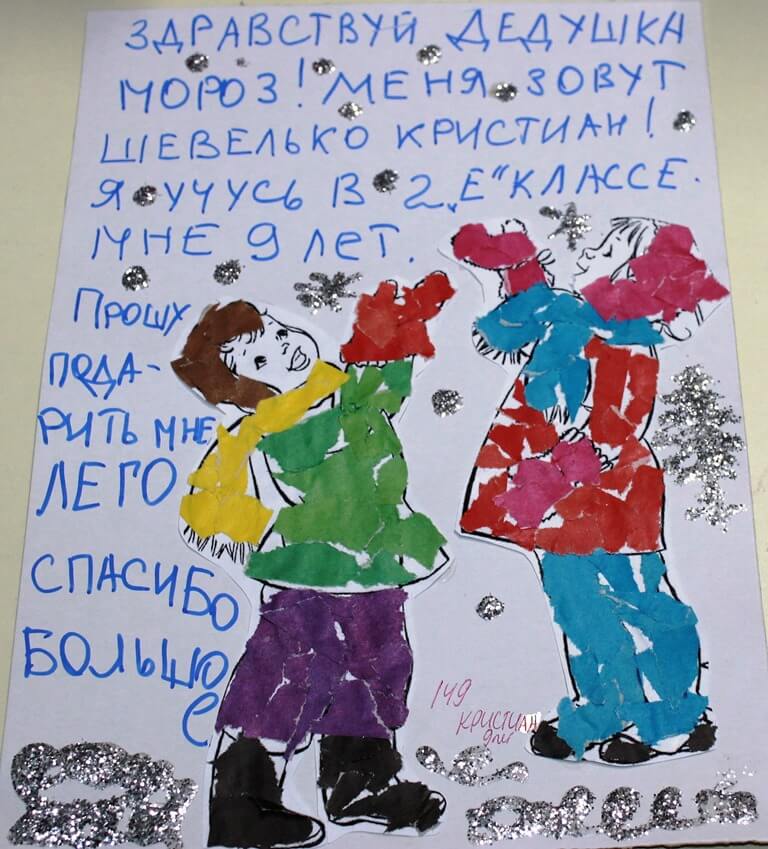 ЗДРАВСТВУЙ ДЕДУШКА
МОРОЗ! МЕНЯ ЗОВУТ
ШЕВЕЛЬКО КРИСТИАН!
Я УЧУСЬ В 2„Е“ КЛАССЕ.
МНЕ 9 ЛЕТ.
ПРОШУ
ПОДА-
РИТЬ МНЕ
ЛЕГО
СПАСИБО
БОЛЬШО
Е
149
КРИСТИАН
9лет